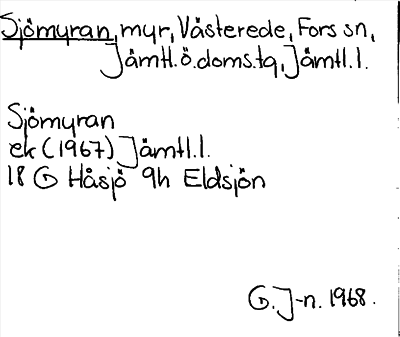 Sjömyran, myr, Västerede, Fors sn,
Jämtl.ö.doms.tg, Jämtl.l.
Sjömyran
ek (1967) Jämtl.l.
18 G Håsjö 9h Eldsjön
G. J-n. 1968.